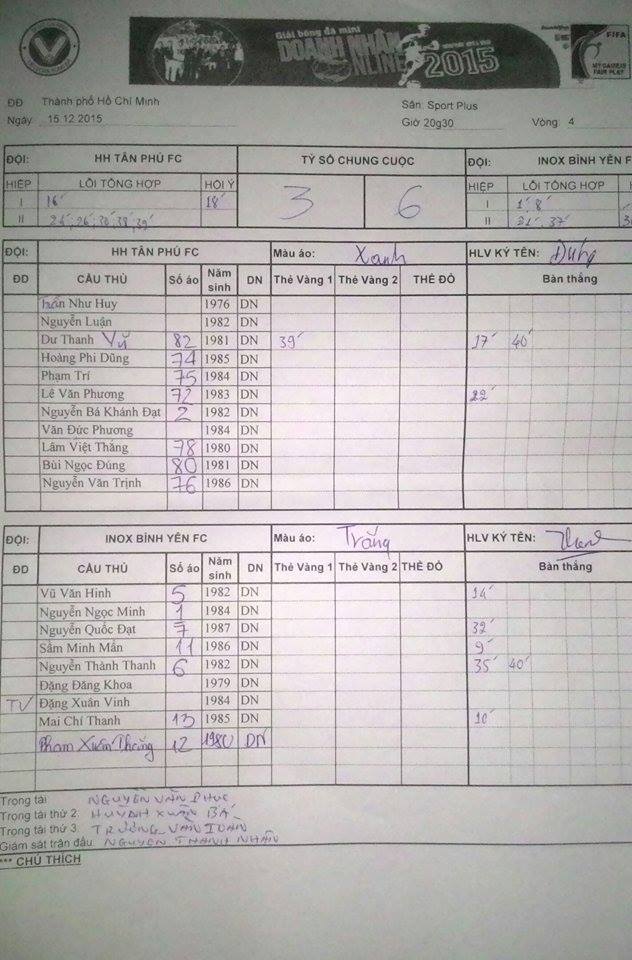 Giải bóng đá mini
DOANH NHÂN
NLINE 2015
FIFA
MY GAME IS
FAIR PLAY
ĐĐ Thành phố Hồ Chí Minh Sân: Sport Plus
Ngày 15.12.2015 Giờ 20g30 Vòng: 4
ĐỘI: HH TÂN PHÚ FC TỶ SỐ CHUNG CUỘC ĐỘI: INOX BÌNH YÊN F
HIỆP LỖI TỔNG HỢP HỘI Ý 3 6 HIỆP LỖI TỔNG HỢP
I 16' 18' I 1' 8'
II 24', 26', 36', 38', 39' II 21' 37'
ĐỘI: HH TÂN PHÚ FC Màu áo: Xanh HLV KÝ TÊN: Đúng
ĐD CẦU THỦ Số áo Năm sinh DN Thẻ Vàng 1 Thẻ Vàng 2 THẺ ĐỎ Bàn thắng
Trần Như Huy 1976 DN
Nguyễn Luận 1982 DN
Dư Thanh Vũ 82 1981 DN 39' 17' 40'
Hoàng Phi Dũng 74 1985 DN
Phạm Trí 75 1984 DN
Lê Văn Phương 72 1983 DN 22'
Nguyễn Bá Khánh Đạt 2 1982 DN
Văn Đức Phương 1984 DN
Lâm Việt Thắng 78 1980 DN
Bùi Ngọc Đúng 80 1981 DN
Nguyễn Văn Trịnh 76 1986 DN
ĐỘI: INOX BÌNH YÊN FC Màu áo: Trắng HLV KÝ TÊN: Thanh
ĐD CẦU THỦ Số áo Năm sinh DN Thẻ Vàng 1 Thẻ Vàng 2 THẺ ĐỎ Bàn thắng
Vũ Văn Hinh 5 1982 DN 14'
Nguyễn Ngọc Minh 1 1984 DN
Nguyễn Quốc Đạt 7 1987 DN 32'
Sầm Minh Mẩn 11 1986 DN 9'
Nguyễn Thành Thanh 6 1982 DN 35' 40'
Đặng Đăng Khoa 1979 DN
TV Đặng Xuân Vinh 1984 DN
Mai Chí Thanh 13 1985 DN 10'
Phạm Xuân Thắng 12 1980 DN
Trọng tài NGUYỄN VĂN PHÚC
Trọng tài thứ 2: HUỲNH XUÂN BÁ
Trọng tài thứ 3: TRƯƠNG VĂN TOÀN
Giám sát trận đấu: NGUYỄN THÀNH NHÂN
*** CHÚ THÍCH